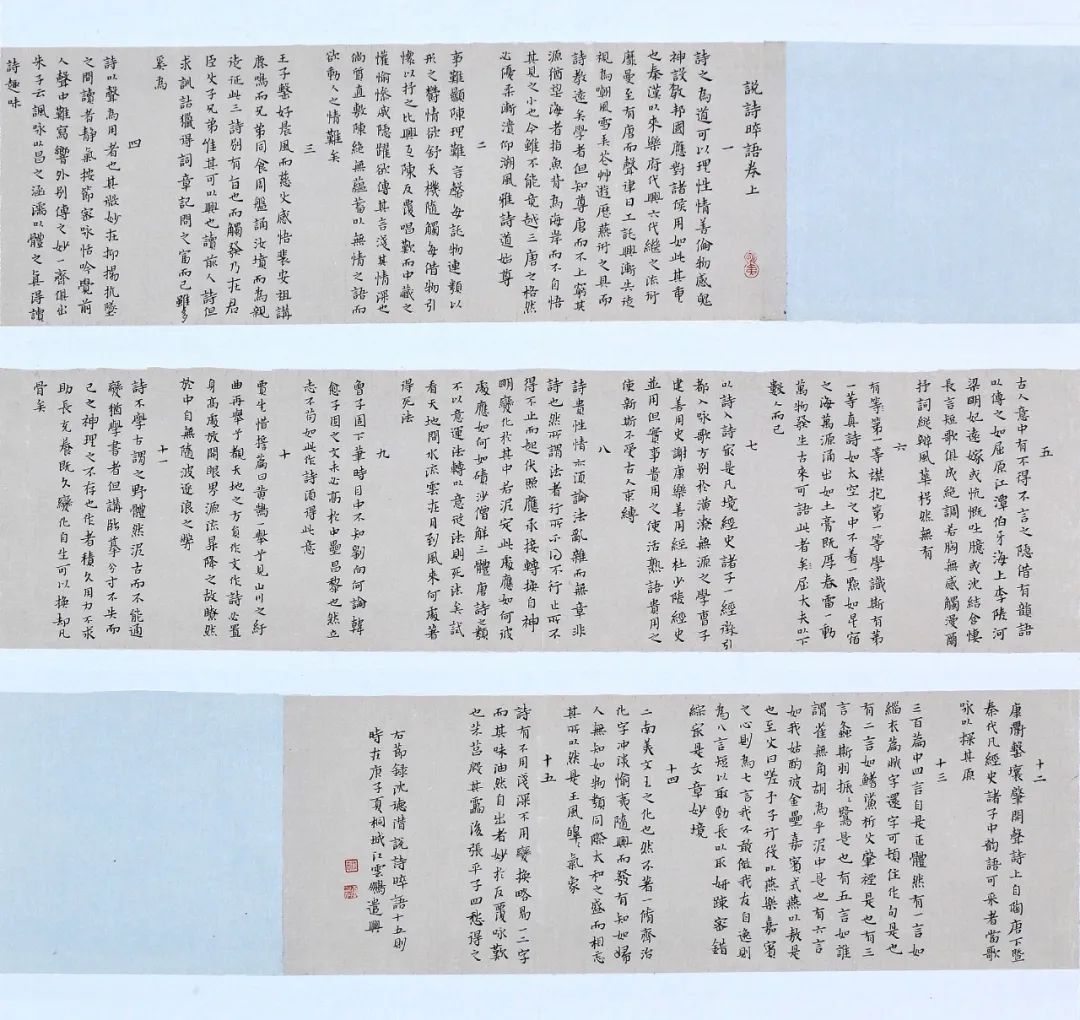 說詩晬語卷上
一
詩之為道可以理性情善倫物感鬼
神設教邦國應對諸侯用如此其重
也秦漢以來樂府代興六代繼之流衍
靡曼至有唐而聲律日工託興漸失徒
視為嘲風雪弄花艸遊歷燕衎之具而
詩教遠矣學者但知尊唐而不上窮其
源猶望海者指魚背為海岸而不自悟
其見之小也今雖不能竟越三唐之格然
必優柔漸漬仰溯風雅詩道始尊
二
事難顯陳理難言罄每託物連類以
形之鬱情欲舒天機隨觸每借物引
懷以抒之比興互陳反覆唱歎而中藏之
懽愉慘戚隱躍欲傳其言淺其情深也
倘質直敷陳絕無蘊蓄以無情之語而
欲動人之情難矣
三
王子擊好晨風而慈父感悟裴安祖講
鹿鳴而兄弟同食周盤誦汝墳而為親
從征此三詩別有旨也而觸發乃在君
臣父子兄弟惟其可以興也讀前人詩但
求訓詁獵得詞章記問之富而已雖多
奚為
四
詩以聲為用者也其微妙在抑揚抗墜
之間讀者靜氣按節密咏恬吟覺前
人聲中難寫響外別傳之妙一齊俱出
朱子云諷咏以昌之涵濡以體之真得讀
詩趣味
五
古人意中有不得不言之隱借有韻語
以傳之如屈原江潭伯牙海上李陵河
梁明妃遠嫁或忼慨吐臆或沈結含悽
長言短歌俱成絕調若胸無感觸漫爾
抒詞縱辦風華枵然無有
六
有第一等襟抱第一等學識斯有第
一等真詩如太空之中不着一點如星宿
之海萬源涌出如土膏既厚春雷一動
萬物發生古來可語此者屈大夫以下
數人而已
七
以詩入詩最是凡境經史諸子一經徵引
都入咏歌方別於潢潦無源之學曹子
建善用史謝康樂善用經杜少陵經史
並用但實事貴用之使活熟語貴用之
使新斯不受古人束縛
八
詩貴性情亦須論法亂雜而無章非
詩也然所謂法者行所不得不行止所不
得不止而起伏照應承接轉換自神
明變化於其中若泥定此處應如何彼
處應如何如磧沙僧解三體唐詩之類
不以意運法轉以意從法則死法矣試
看天地間水流雲在月到風來何處著
得死法
九
曾子固下筆時目中不知劉向何論韓
愈子固之文未必高於中壘昌黎也然立
志不苟如此作詩須得此意
十
賈生惜誓篇曰黃鵠一舉兮見山川之紆
曲再舉兮覩天地之方員作文作詩必置
身高處放開眼界源流升降之故瞭然
於中自無隨波逐浪之弊
十一
詩不學古謂之野體然泥古而不能通
變猶學書者但講臨摹分寸不失而
己之神理不存也作者積久用力不求
助長充養既久變化自生可以換却凡
骨矣
十二
康衢擊壤肇開聲詩上自陶唐下暨
秦代凡經史諸子中韵語可采者當歌
咏以探其原
十三
三百篇中四言自是正體然有一言如
緇衣篇敝字還字可頓住作句是也
有二言如鱨鯊祈父肇禋是也有三
言如螽斯羽振振鷺是也有五言如誰
謂雀無角胡為乎泥中是也有六言
如我姑酌彼金罍嘉賓式燕以敖是
也至父曰嗟予子行役以燕樂嘉賓
之心則為七言我不敢傚我友自逸則
為八言短以取勁長以取妍疎密錯
綜最是文章妙境
十四
二南美文王之化也然不著一脩齊治
化字冲淡愉夷隨興而發有知如婦
人無知如物類同際太和之盛而相忘
其所以然是王風皞皞氣象
十五
詩有不用淺深不用變換略易一二字
而其味油然自出者妙於反覆咏歎
也芣苢殷其靁後張平子四愁得之
右節錄沈德潛說詩晬語十五則
時在庚子夏桐城江雲鵬遣興